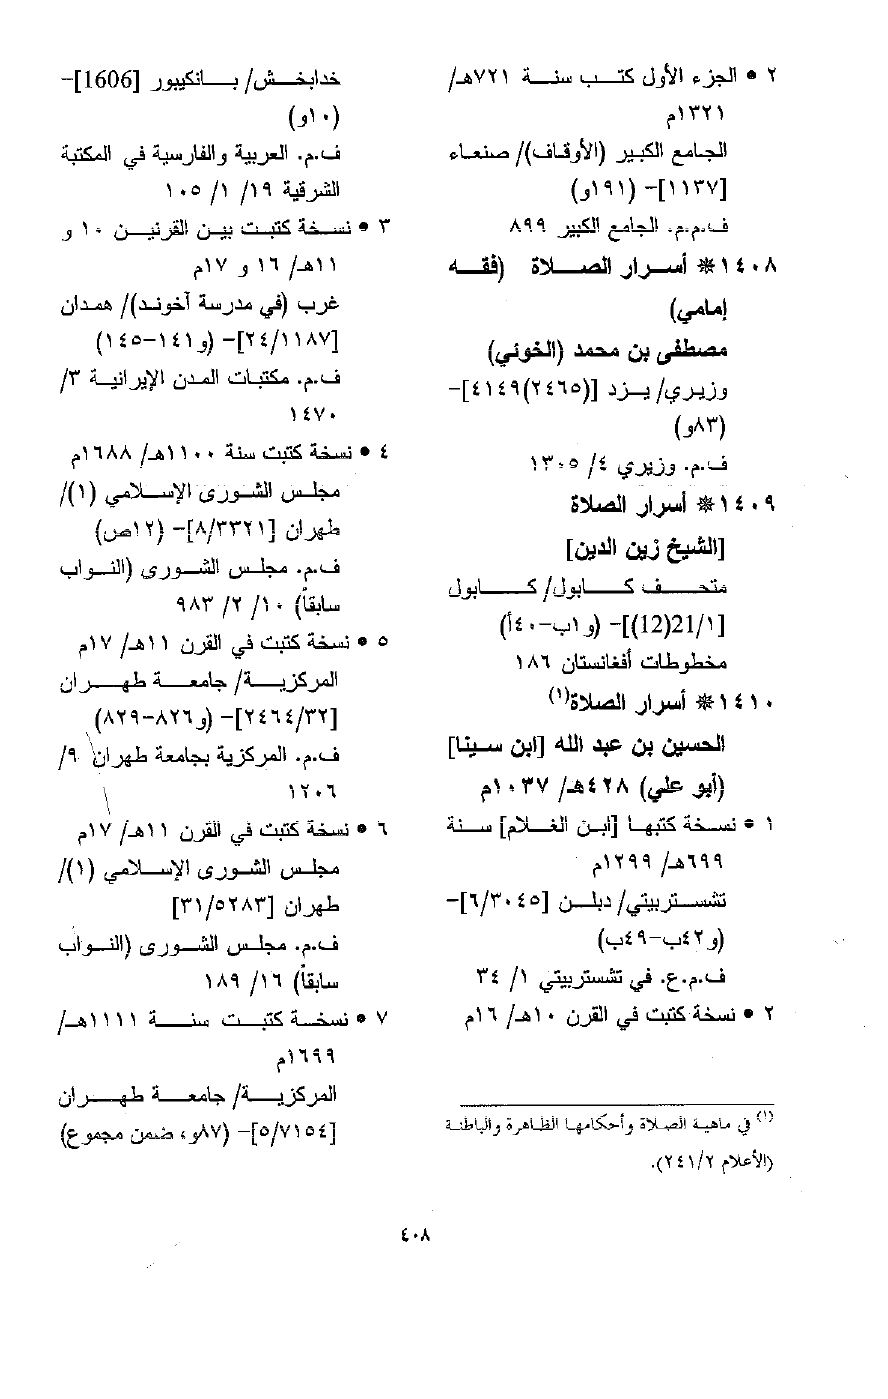 ٢ • الجزء الأول كتب سنة ٧٢١هـ/
١٣٢١م
الجامع الكبير (الأوقاف)/ صنعاء
[١١٣٧]– (١٩١و)
ف.م.م. الجامع الكبير ٨٩٩
١٤٠٨* أسرار الصلاة (فقه
إمامي)
مصطفى بن محمد (الخوئي)
وزيري/ يزد [(٢٤٦٥)٤١٤٩]–
(٨٣و)
ف.م. وزيري ٤/ ١٣٠٥
١٤٠٩* أسرار الصلاة
[الشيخ زين الدين]
متحف كابول/ كابول
[21/١(12)]– (و١ب–٤٠أ)
مخطوطات أفغانستان ١٨٦
١٤١٠* أسرار الصلاة(١)
الحسين بن عبد الله [ابن سينا]
(أبو علي) ٤٢٨هـ/ ١٠٣٧م
١ • نسخة كتبها [ابن الغلام] سنة
٦٩٩هـ/ ١٢٩٩م
تشستربيتي/ دبلن [٦/٣٠٤٥]–
(و٤٢ب–٤٩ب)
ف.م.ع. في تشستربيتي ١/ ٣٤
٢ • نسخة كتبت في القرن ١٠هـ/ ١٦م
(١) في ماهية الصلاة وأحكامها الظاهرة والباطنة
(الأعلام ٢٤١/٢).
خدابخش/ بانكيبور [1606]–
(١٠و)
ف.م. العربية والفارسية في المكتبة
الشرقية ١٩/ ١/ ١٠٥
٣ • نسخة كتبت بين القرنين ١٠ و
١١هـ/ ١٦ و ١٧م
غرب (في مدرسة آخوند)/ همدان
[٢٤/١١٨٧]– (و١٤١–١٤٥)
ف.م. مكتبات المدن الإيرانية ٣/
١٤٧٠
٤ • نسخة كتبت سنة ١١٠٠هـ/ ١٦٨٨م
مجلس الشورى الإسلامي (١)/
طهران [٨/٣٣٢١]– (١٢ص)
ف.م. مجلس الشورى (النواب
سابقاً) ١٠/ ٢/ ٩٨٣
٥ • نسخة كتبت في القرن ١١هـ/ ١٧م
المركزية/ جامعة طهران
[٢٤٦٤/٣٢]– (و٨٢٦–٨٢٩)
ف.م. المركزية بجامعة طهران ٩/
١٢٠٦
٦ • نسخة كتبت في القرن ١١هـ/ ١٧م
مجلس الشورى الإسلامي (١)/
طهران [٣١/٥٢٨٣]
ف.م. مجلس الشورى (النواب
سابقاً) ١٦/ ١٨٩
٧ • نسخة كتبت سنة ١١١١هـ/
١٦٩٩م
المركزية/ جامعة طهران
[٥/٧١٥٤]– (٨٧و، ضمن مجموع)
٤٠٨